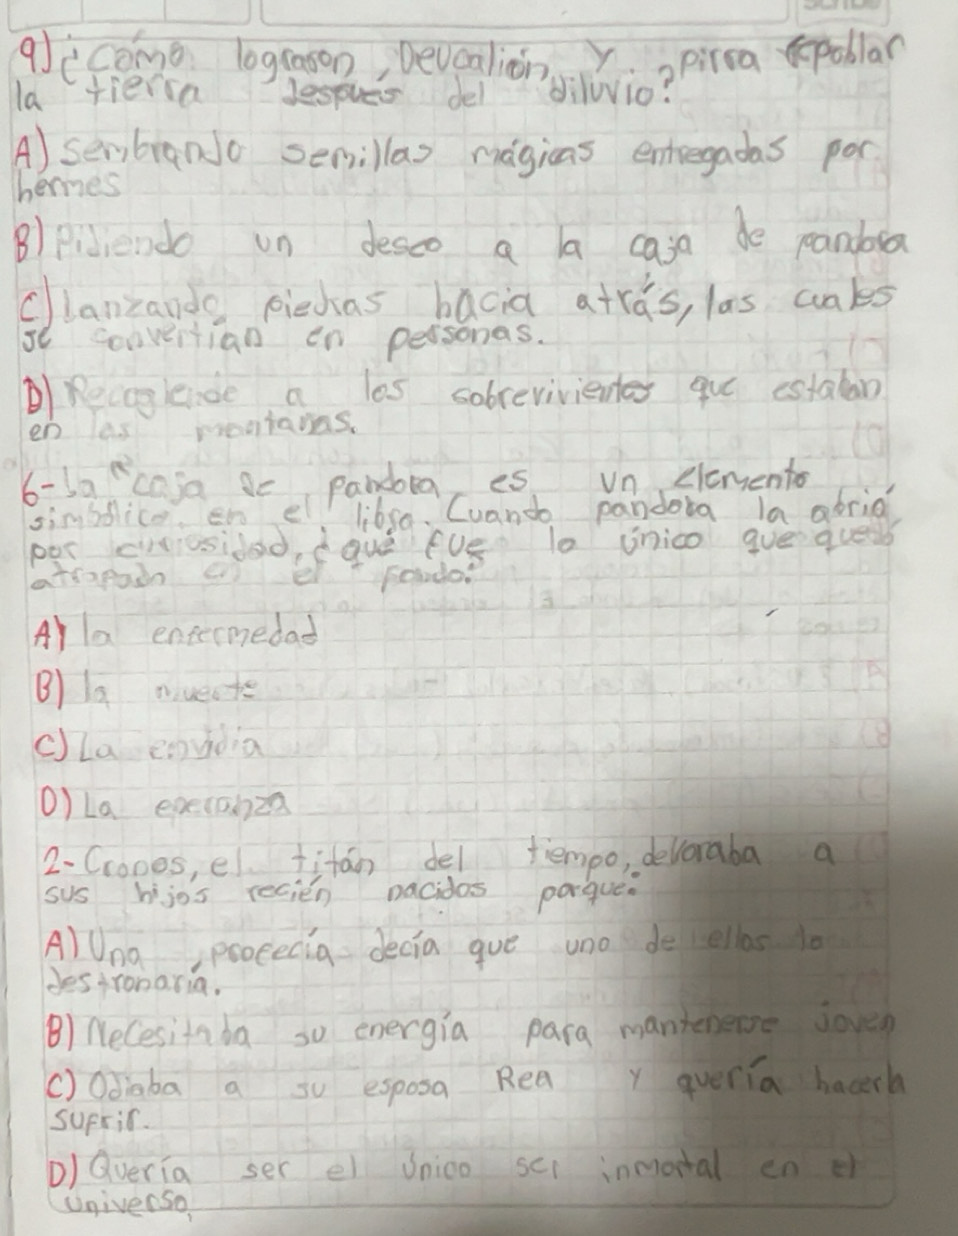 9) ¿como lograron Deucalión y pirra repoblar
la tierra despues del diluvio?
A) sembrando semillas mágicas entregadas por
hermes
B) Pidiendo un deseo a la caja de pandora
C) Lanzando piedras hacia atrás, las cuales
se convertian en personas.
D) Recogiendo a los sobrevivientes que estaban
en las montañas.
6- La caja de pandora es un elemento
simbólico en el libro. Cuando pandora la abrió
por curiosidad, ¿que fue lo único que quedó
en el fondo?
A) la enfermedad
B) la muerte
C) La envidia
D) La eperanza
2- Cronos, el titán del tiempo, devoraba a
sus hijos recién nacidos porque:
A) Una profecía decía que uno de ellos lo
destronaría.
B) Necesitaba su energía para mantenerse joven
C) Odiaba a su esposa Rea y quería hacerla
sufrir.
D) Quería ser el único ser inmortal en el
universo